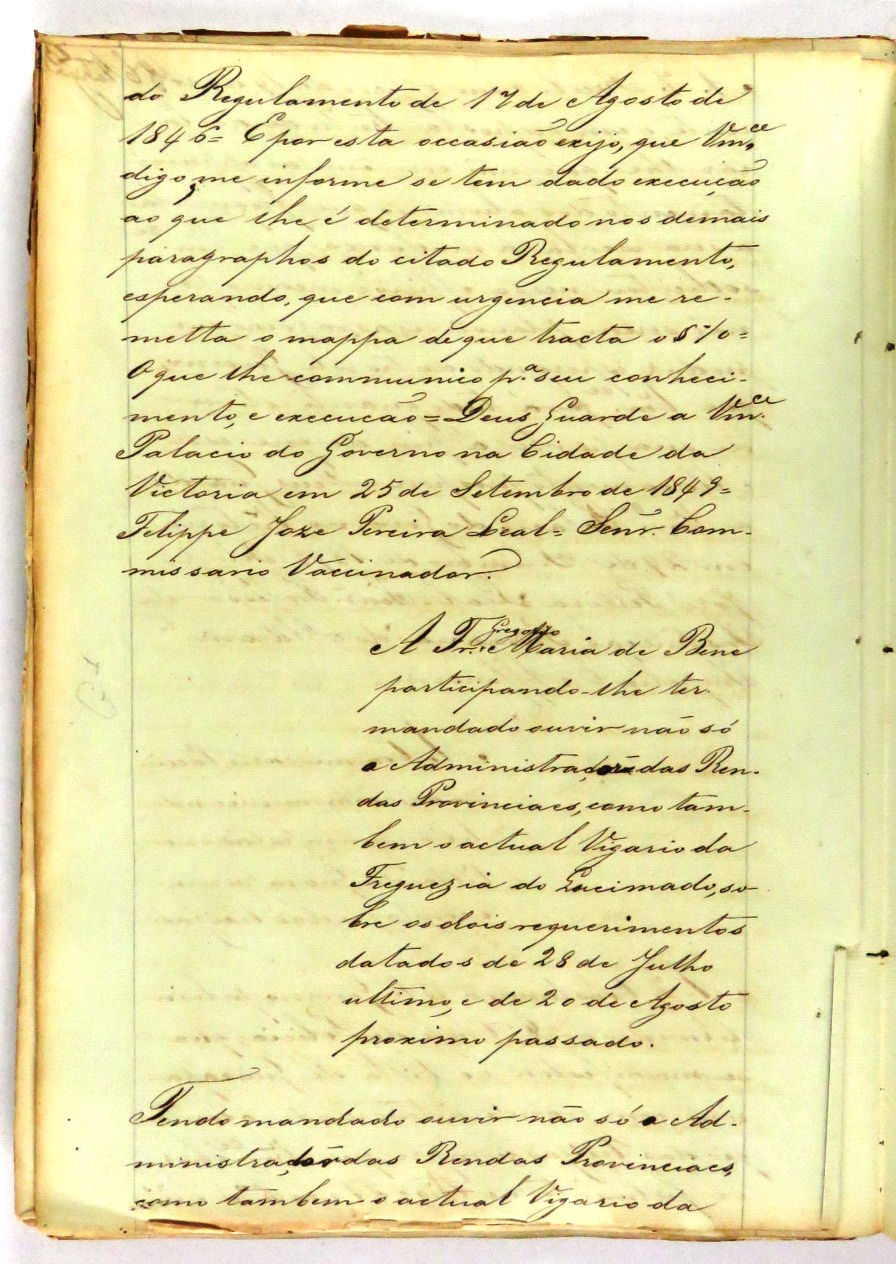 do Regulamento de 17 de Agosto de
1846= E por esta occasião exijo, que Vm.ce
digo, me informe se tem dado execução
ao que lhe é determinado nos demais
paragraphos do citado Regulamento,
esperando, que com urgencia me re-
metta o mappa de que tracta o §
O que lhe communico p.a seu conheci-
mento, e execução= Deus Guarde a Vm.ce
Palacio do Governo na Cidade da
Victoria em 25 de Setembro de 1849=
Felippe Joze Pereira Leal= Senr. Com-
missario Vaccinador.
A Fr. Gregorio Maria de Bene
participando-lhe ter
mandado ouvir não só
a Administração das Ren-
das Provinciaes, como tam-
bem o actual Vigario da
Freguezia do Queimado, so-
bre os dois requerimentos
datados de 28 de Julho
ultimo, e de 20 de Agosto
proximo passado.
Tendo mandado ouvir não só o Ad-
ministrador das Rendas Provinciaes,
como tambem o actual Vigario da